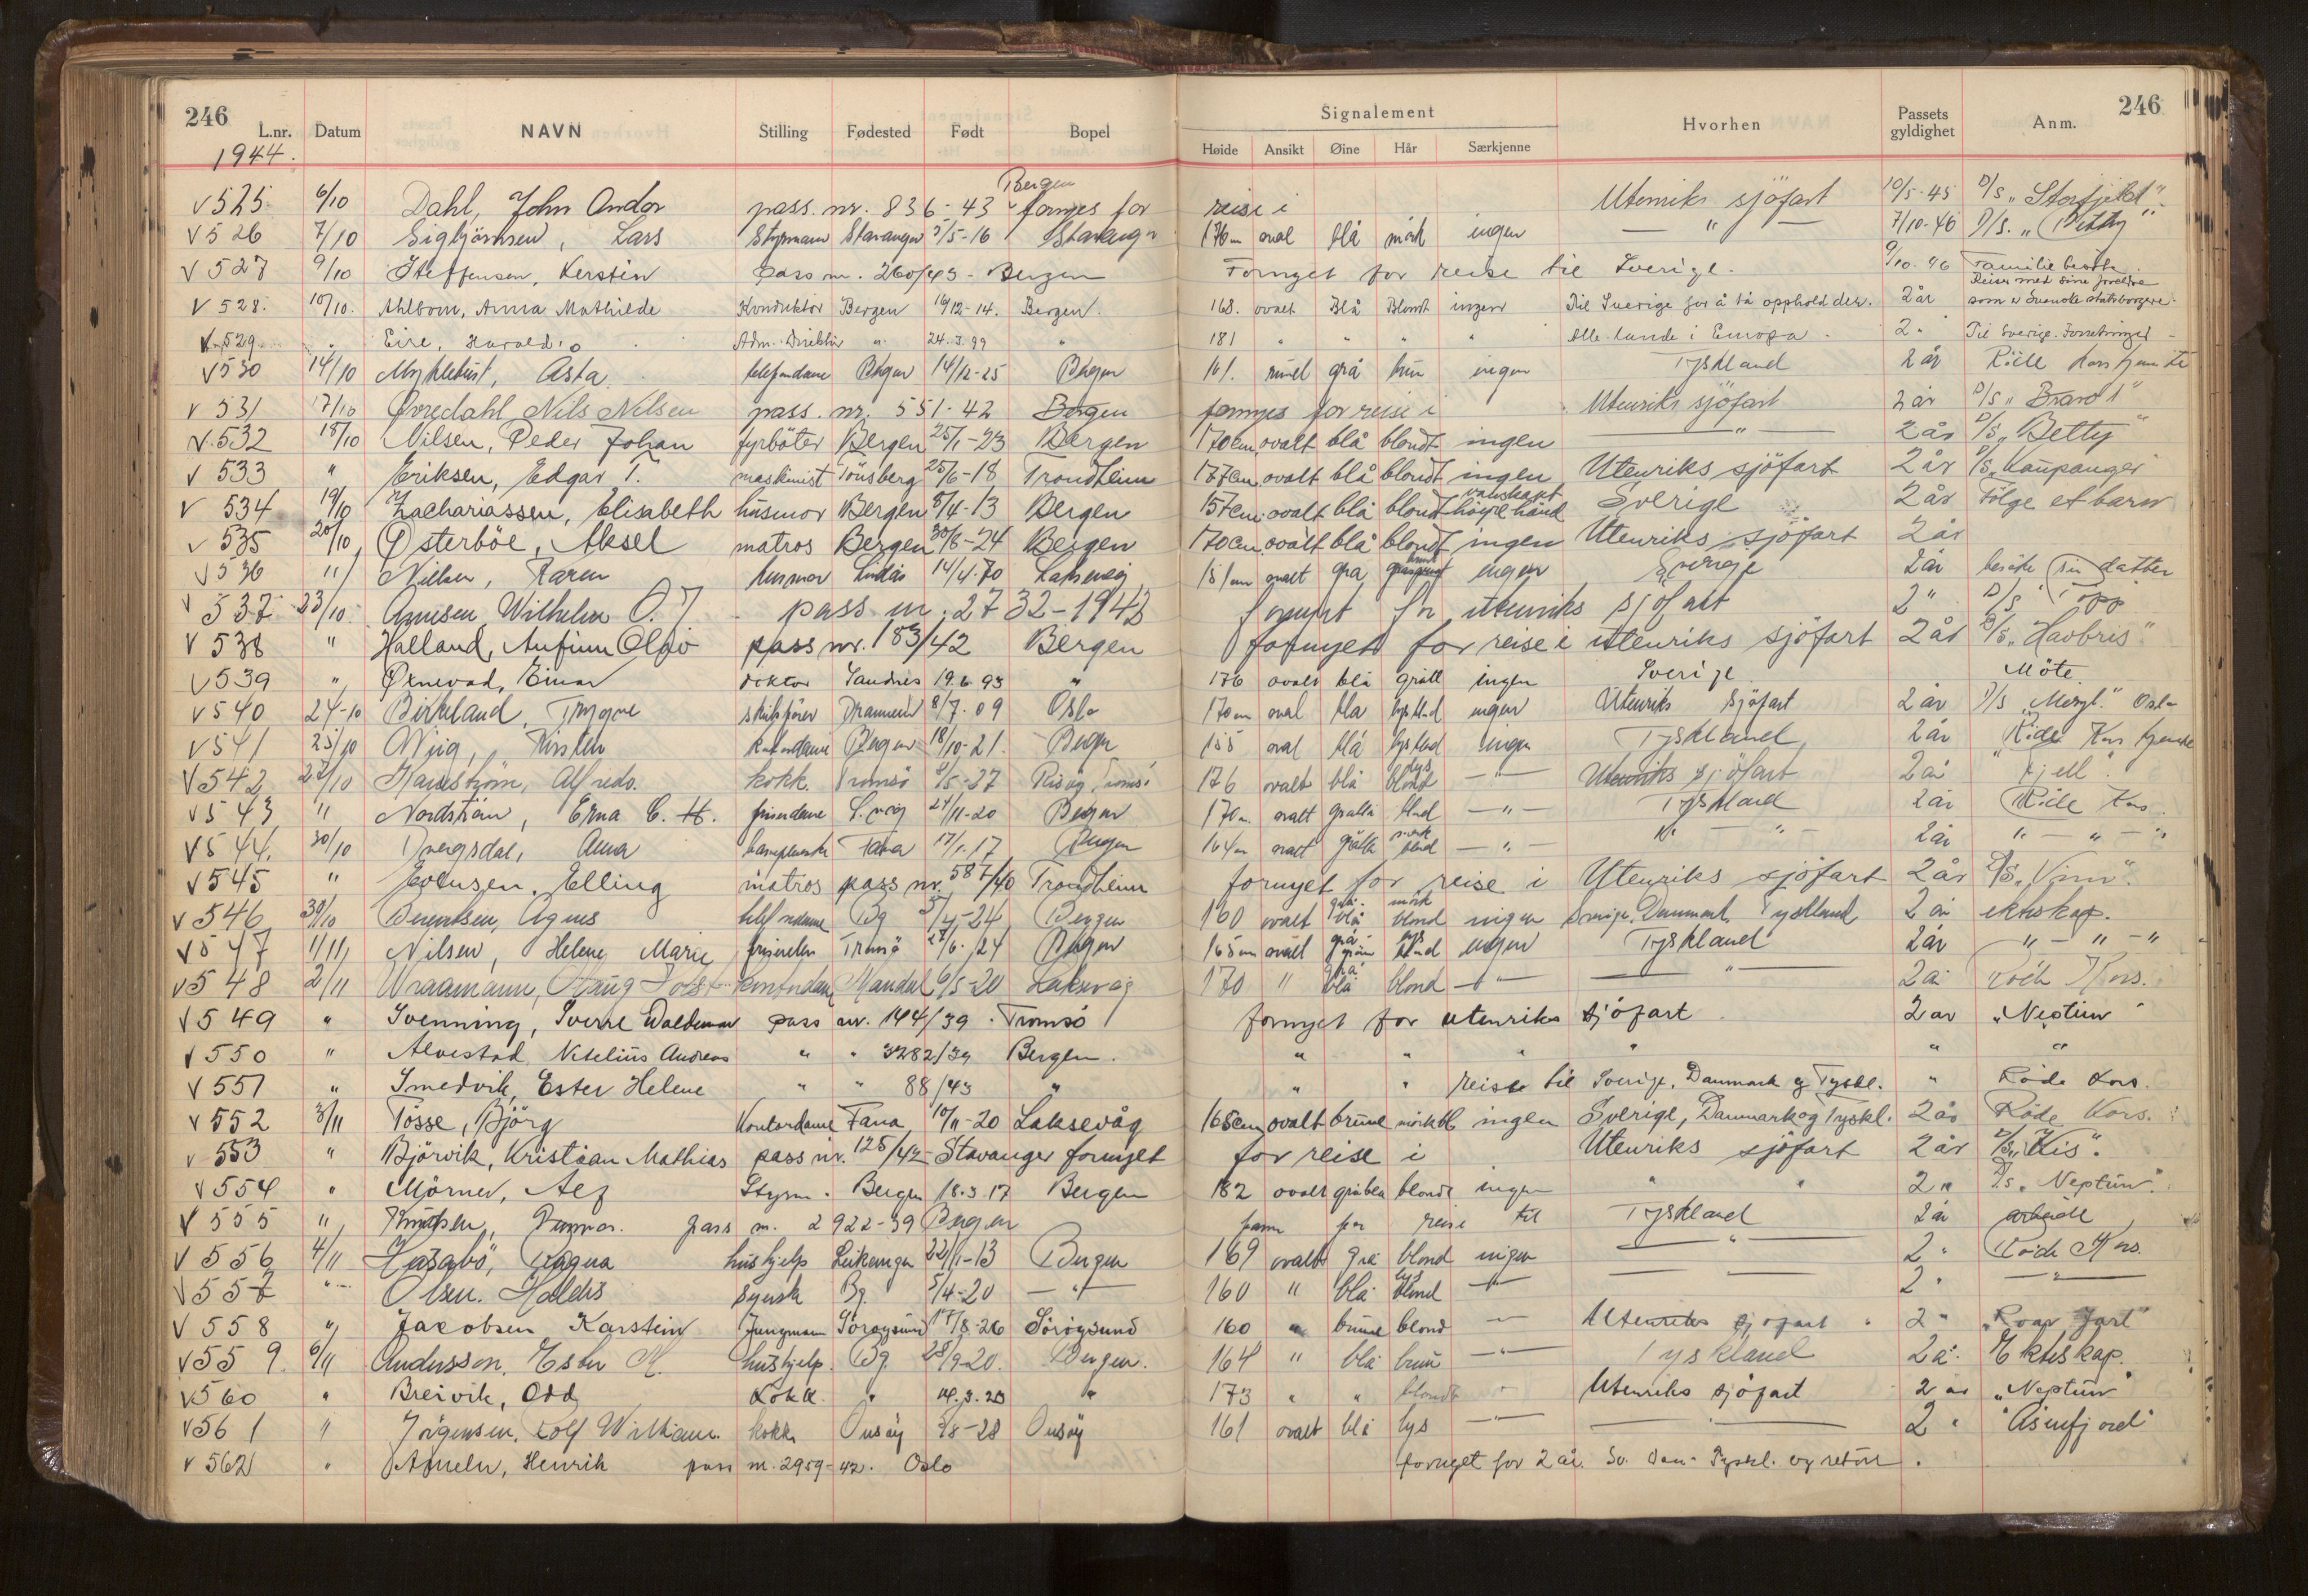 246 246
Signalement
L.nr. Datum NAVN Stilling Fødested Født Bopel Høide Ansikt Øine Hår Særkjenne Hvorhen Passets gyldighet Anm.
1944.
V 525 6/10 Dahl, John Andor pass. nr. 836-43 Bergen fornyes for reise i Utenriks sjöfart 10/5-45 D/S „Storfjeld"
V 526 7/10 Sigbjörnsen, Lars Styrmann Stavanger 5/5-16 Stavanger 176 cm oval blå mörk ingen — " — 7/10-46 D/S. „Betty"
V 527 9/10 Steffensen, Kerstin pass nr. 260/43 - Bergen Fornyet for reise til Sverige. 9/10-46 Familie besök.
V 528. 10/10. Ahlbom, Anna Mathilde Konduktör Bergen 16/12-14. Bergen. 168. ovalt Blå Blondt ingen Til Sverige for å få opphold der. 2 år Reiser med sine foreldre som er Svenske statsborgere.
V 529. " Eire, Harald. Adm. Direktör " 24-3-99 " 181 " " " " Alle lande i Europa. 2 " Til Sverige. Forretninger -
V 530 14/10 Myklebust, Asta telefondame Bergen 14/12-25 Bergen 161. rund grå brun ingen Tyskland 2 år Röde Kors tjeneste
V 531 17/10 Övredahl, Nils Nilsen pass. nr. 551-42 Bergen fornyes for reise i Utenriks sjöfart 2 år D/S „Bravo I"
V 532 18/10 Nilsen, Peder Johan fyrböter Bergen 25/1-23 Bergen 170 cm. ovalt blå blondt ingen — " — 2 år D/S „Betty"
V 533 " Eriksen, Edgar T. maskinist Tönsberg 25/6-18 Trondheim 177 cm. ovalt blå blondt ingen Utenriks sjöfart 2 år D/S „Kaupanger"
V 534 19/10 Zachariassen, Elisabeth husmor Bergen 8/4-13 Bergen 157 cm. ovalt blå blondt vanskapt höyre hånd Sverige 2 år Fölge et barn
V 535 20/10 Österböe, Aksel matros Bergen 30/8-24 Bergen 170 cm. ovalt blå blondt ingen Utenriks sjöfart 2 år
V 536 " Nielsen, Karen husmor Lindås 14/4-70 Laksevåg 151 cm ovalt grå ingen Sverige 2 år besöke sin datter
V 537 23/10. Arnesen, Wilhelm O. J. - pass nr. 2732-1943 fornyet for utenriks sjöfart 2 " D/S „Topp"
V 538 " Halland, Anfinn Olai pass nr. 183/42 Bergen fornyet for reise i utenriks sjöfart 2 år D/S „Havbris"
V 539 " Ørnevad, Einar doktor Sandnes 19.6.93 " 176 ovalt blå grått ingen Sverige Möte
V 540 24-10 Birkeland, Trygve skibsförer Drammen 8/7-09 Oslo 170 cm oval blå lysblond ingen Utenriks sjöfart 2 år D/S Oslo
V 541 25/10 Wiig, Kirsten kontordame Bergen 18/10-21. Bergen 155 oval blå lysblond ingen Tyskland 2 år Röde Kors tjeneste
V 542 27/10 Alfredo. kokk. Tromsö 27 Tromsö 176 ovalt blå lys blond — " — Utenriks sjöfart 2 år „Kjell".
V 543 " Nordström, Erna C. H. frisördame 24/11-20 Bergen 170 cm. ovalt gråblå blond — " — Tyskland 2 år Röde Kors
V 544. 30/10 Dvergsdal, Anna barnepleierske Fana 17/1-17 Bergen 164 cm ovalt gråblå mörk blond — " — " — " — 2 år " — " — "
V 545 " Evensen, Elling matros pass nr. 587/40 Trondheim fornyet for reise i Utenriks sjöfart 2 år D/S „Vim".
V 546 30/10 Berntsen, Agnes telefondame Bg 24 Bergen 160 ovalt grå-blå mörk blond ingen Sverige, Danmark, Tyskland 2 år ekteskap.
V 547 1/11 Nilsen, Helene Marie friserelev Tromsö 27/6-24 Bergen 165 cm ovalt grå-grönn lys blond ingen Tyskland 2 år " — " — "
V 548 2/11 Wraamann, kontordame Mandal 6/5-20 Laksevåg 170 " grå blå blond — " — — " — 2 år Röde Kors.
V 549 " Svenning, Sverre Waldemar pass nr. 144/39. Tromsö fornyet for utenriks sjöfart 2 år „Neptun"
V 550 " Alvestad, Niselius Andreas " " 3282/39 Bergen. " " " " " "
V 551 " Smedvik, Ester Helene " " 88/43 " " " reise til Sverige, Danmark og Tyskl. " Röde Kors.
V 552 3/11 Tösse, Björg Kontordame Fana 10/11-20 Laksevåg 165 cm ovalt brune mörkbl. ingen Sverige, Danmark og Tyskl. 2 år Röde Kors.
V 553 " Björvik, Kristian Mathias pass nr. 125/42 - Stavanger fornyet for reise i Utenriks sjöfart 2 år D/S „Kis".
V 554 " Mörner, Alf Styrm. Bergen 18.3.17 Bergen 182 ovalt gråblå blondt ingen " " 2 " D/s „Neptun".
V 555 " Knutsen, Gunnar. pass nr. 2922-39 Bergen forn for reise til Tyskland 2 år arbeide
V 556 4/11 Håsabö, Ragna hushjelp Leikanger 22/1-13 Bergen 169 ovalt grå blond ingen — " — 2 " Röde Kors.
V 557 " - Olsen. Halldis syersk Bg. 5/4-20 — " — 160 " blå lys blond — " — — — 2 " — " —
V 558 " Jakobsen Karstein Jungmann Söröysund 17/8-26 Söröysund 160 " brune blond — Utenriks sjöfart 2 " „Roar Jarl"
V 559. 6/11 Andersson, Ester M. hushjelp. Bg. 28/9-20. Bergen. 164 " blå brun — " — Tyskland 2 å. Ekteskap.
V 560 " Breivik, Odd Kokk. " 14.3.23 " 173 " " blondt " Utenriks sjöfart 2 år „Neptun"
V 561 " Jörgensen, Rolf William. kokk Onsöy 28 Onsöy 161 ovalt blå lys — " — — " — 2 " „Åsenfjord"
V 562 " Henrik pass nr. 2959-42. Oslo fornyet for 2 år. Sv. Dan- Tyskl. og retur.